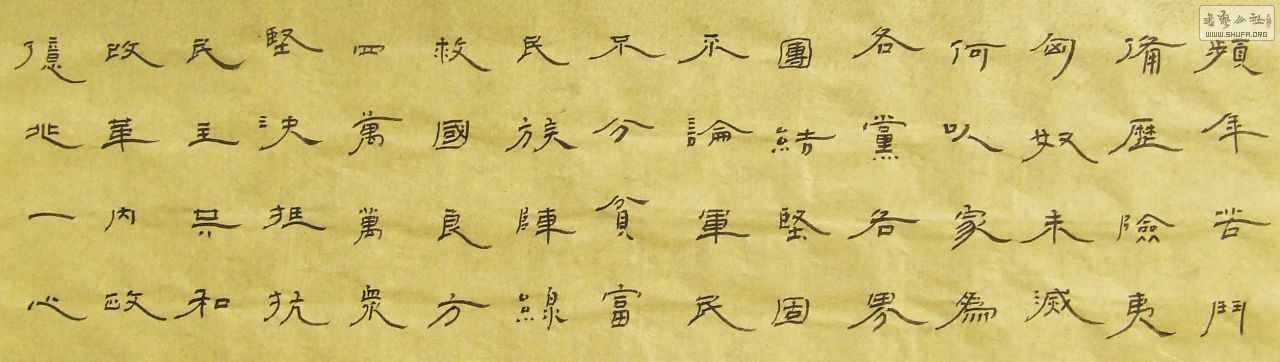 頻年苦鬥
備歷險夷
匈奴未滅
何以家為
各黨各界
團結堅固
不論軍民
不分貧富
民族陣線
救國良方
四萬萬眾
堅決抵抗
民主共和
改革內政
億兆一心
書藝公社
WWW.SHUFA.ORG